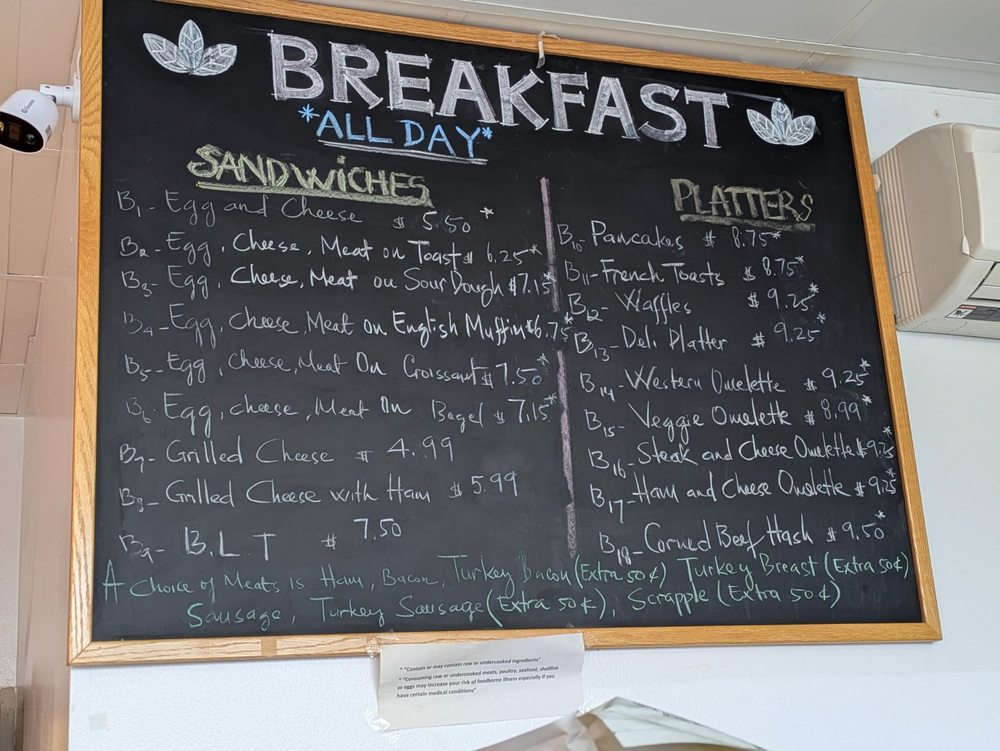 BREAKFAST
*ALL DAY*
SANDWICHES
B1- Egg and Cheese $ 5.50*
B2- Egg, Cheese, Meat on Toast $ 6.25*
B3- Egg, Cheese, Meat on Sour Dough $7.15*
B4- Egg, Cheese, Meat on English Muffin $6.75*
B5- Egg, Cheese, Meat On Croissant $ 7.50*
B6- Egg, cheese, Meat On Bagel $ 7.15*
B7- Grilled Cheese $ 4.99
B8- Grilled Cheese with Ham $ 5.99
B9- B.L.T $ 7.50
PLATTERS
B10- Pancakes $ 8.75*
B11- French Toasts $ 8.75*
B12- Waffles $ 9.25*
B13- Deli Platter $ 9.25*
B14- Western Omelette $ 9.25*
B15- Veggie Omelette $ 8.99*
B16- Steak and Cheese Omelette $9.25*
B17- Ham and Cheese Omelette $9.25*
B18- Corned Beef Hash $ 9.50*
A Choice of Meats is Ham, Bacon, Turkey Bacon (Extra 50¢) Turkey Breast (Extra 50¢)
Sausage, Turkey Sausage (Extra 50¢), Scrapple (Extra 50¢)
* "Contain or may contain raw or undercooked ingredients"
* "Consuming raw or undercooked meats, poultry, seafood, shellfish
or eggs may increase your risk of foodborne illness especially if you
have certain medical conditions"